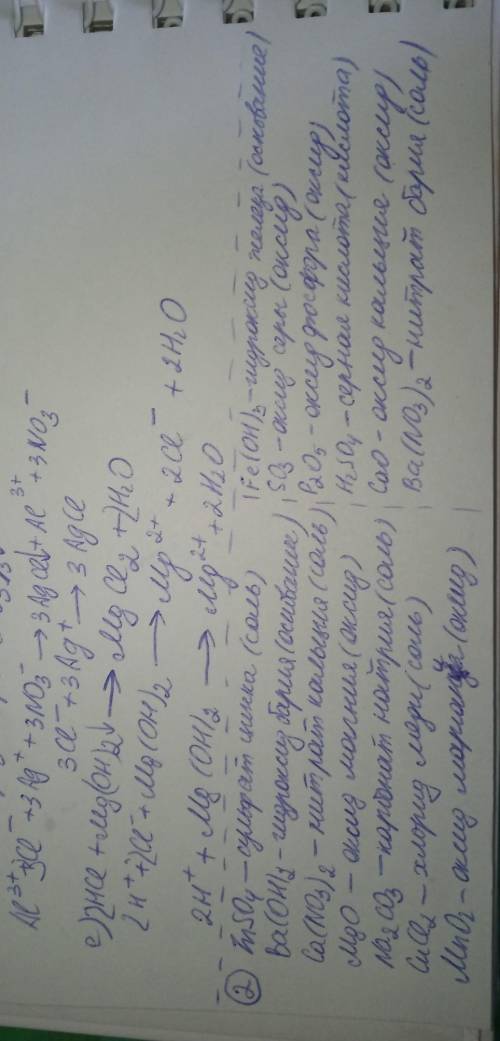 Al³⁺ + 3Cl⁻ + 3Ag⁺ + 3NO₃⁻ → 3AgCl↓ + Al³⁺ + 3NO₃⁻
3Cl⁻ + 3Ag⁺ → 3AgCl
е) 2HCl + Mg(OH)₂↓ → MgCl₂ + 2H₂O
2H⁺ + 2Cl⁻ + Mg(OH)₂ → Mg²⁺ + 2Cl⁻ + 2H₂O
2H⁺ + Mg(OH)₂ → Mg²⁺ + 2H₂O
② ZnSO₄ – сульфат цинка (соль)
Ba(OH)₂ – гидроксид бария (основание)
Ca(NO₃)₂ – нитрат кальция (соль)
MgO – оксид магния (оксид)
Na₂CO₃ – карбонат натрия (соль)
CuCl₂ – хлорид меди (соль)
MnO₂ – оксид марганца (оксид)
Fe(OH)₃ – гидроксид железа (основание)
SO₃ – оксид серы (оксид)
P₂O₅ – оксид фосфора (оксид)
H₂SO₄ – серная кислота (кислота)
CaO – оксид кальция (оксид)
Ba(NO₃)₂ – нитрат бария (соль)